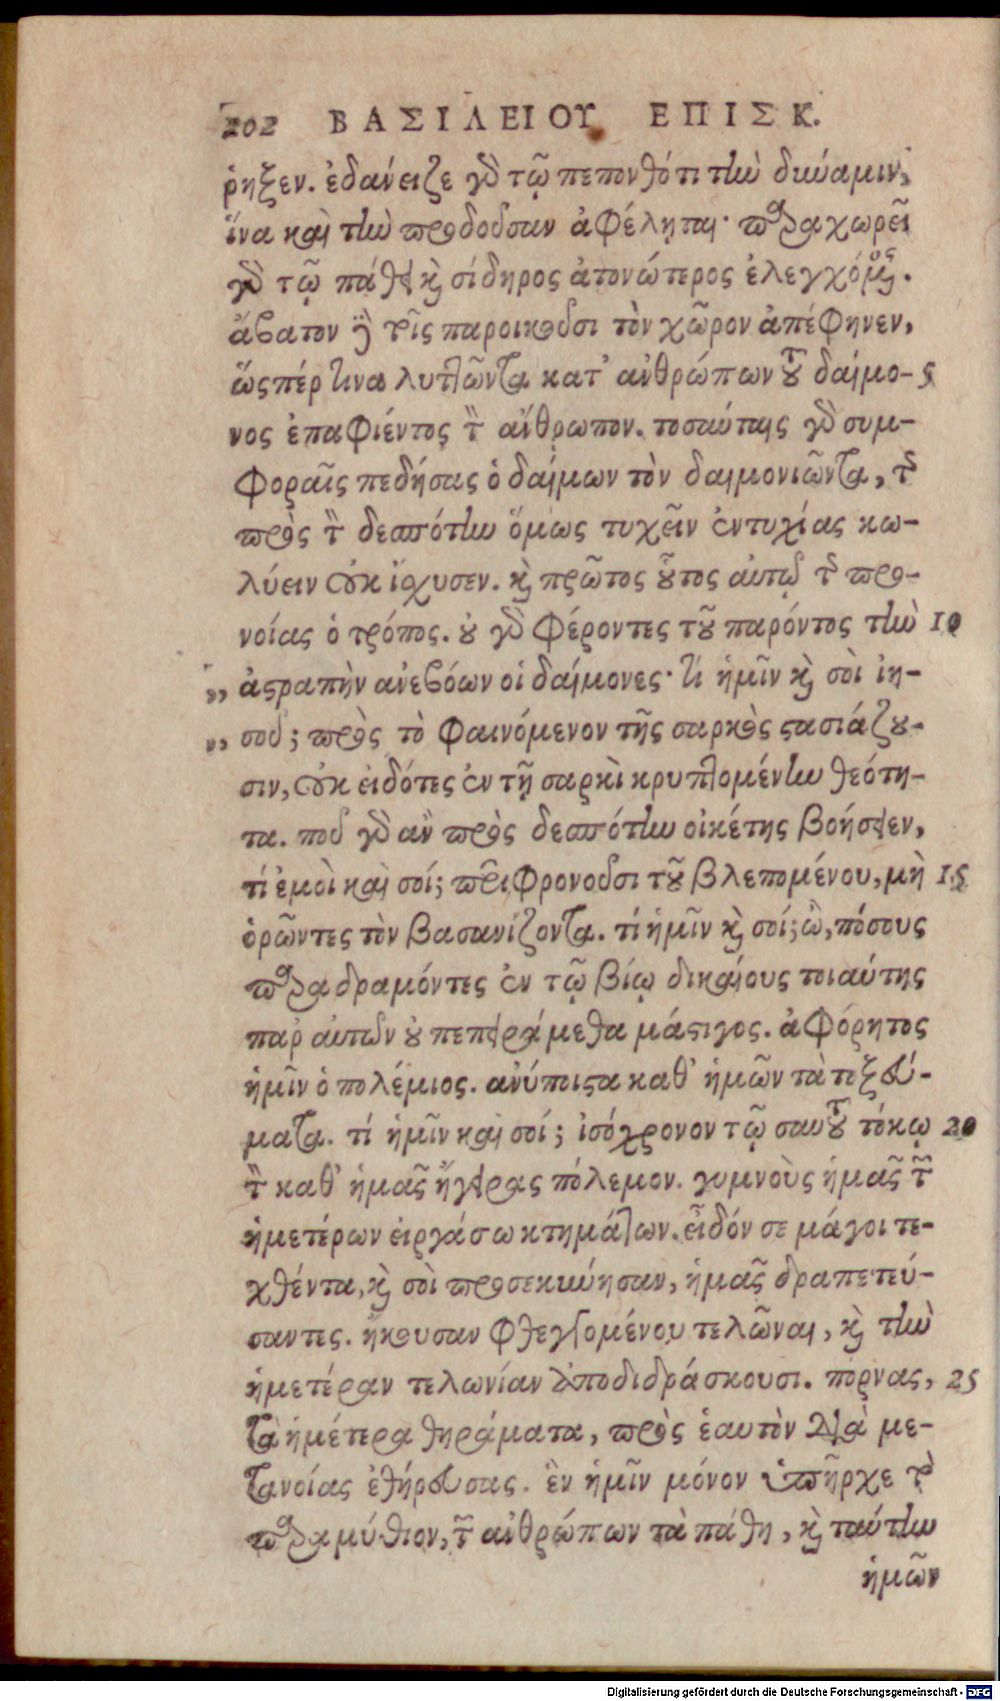 202 ΒΑΣΙΛΕΙΟΥ ΕΠΙΣΚ.
ῥηξεν. ἐδάνειζε γὸ τῷ πεπονθότι τὴν δύναμιν,
ἵνα καὶ τὴν προδοῦσαν ἀφέληται· παραχωρεῖ
γὸ τῷ πάθει καὶ σίδηρος ἀτονώτερος ἐλεγχόμενος.
ἄβατον δὲ τοῖς παροικοῦσι τὸν χῶρον ἀπέφηνεν,
ὥσπέρ τινα λυττῶντα κατ᾽ ἀνθρώπων τοῦ δαίμο- 5
νος ἐπαφιέντος τὸν ἄνθρωπον. τοσαύταις γὸ συμ-
φοραῖς πεδήσας ὁ δαίμων τὸν δαιμονιῶντα, τῆς
πρὸς τὸν δεσπότην ὅμως τυχεῖν ἐντυχίας κω-
λύειν οὐκ ἴσχυσεν. καὶ πρῶτος οὗτος αὐτῷ τῆς προ-
νοίας ὁ τρόπος. οὐ γὸ φέροντες τοῦ παρόντος τὴν 10
„ ἀστραπὴν ἀνεβόων οἱ δαίμονες· τί ἡμῖν καὶ σοὶ ἰη-
„ σοῦ; πρὸς τὸ φαινόμενον τῆς σαρκὸς στασιάζου-
σιν, οὐκ εἰδότες ἐν τῇ σαρκὶ κρυπτομένην θεότη-
τα. ποῦ γὸ ἂν πρὸς δεσπότην οἰκέτης βοήσειεν,
τί ἐμοὶ καὶ σοί; περιφρονοῦσι τοῦ βλεπομένου, μὴ 15
ὁρῶντες τὸν βασανίζοντα. τί ἡμῖν καὶ σοί; ὢ, πόσους
παραδραμόντες ἐν τῷ βίῳ δικαίους τοιαύτης
παρ᾽ αὐτῶν οὐ πεπειράμεθα μάστιγος. ἀφόρητος
ἡμῖν ὁ πολέμιος. ἀνύποιστα καθ᾽ ἡμῶν τὰ τοξεύ-
ματα. τί ἡμῖν καὶ σοί; ἰσόχρονον τῷ σαυτοῦ τόκῳ 20
τὸν καθ᾽ ἡμᾶς ἤγειρας πόλεμον. γυμνοὺς ἡμᾶς τῶν
ἡμετέρων εἰργάσω κτημάτων. εἶδόν σε μάγοι τε-
χθέντα, καὶ σοὶ προσεκύνησαν, ἡμᾶς δραπετεύ-
σαντες. ἤκουσαν φθεγγομένου τελῶναι, καὶ τὴν
ἡμετέραν τελωνίαν ἀποδιδράσκουσι. πόρνας, 25
τὰ ἡμέτερα θηράματα, πρὸς ἑαυτὸν διὰ με-
τανοίας ἐθήρευσας. ἓν ἡμῖν μόνον ὑπῆρχε τὸ
παραμύθιον, τῶν ἀνθρώπων τὰ πάθη, καὶ ταύτην
ἡμῶν
Digitalisierung gefördert durch die Deutsche Forschungsgemeinschaft - DFG